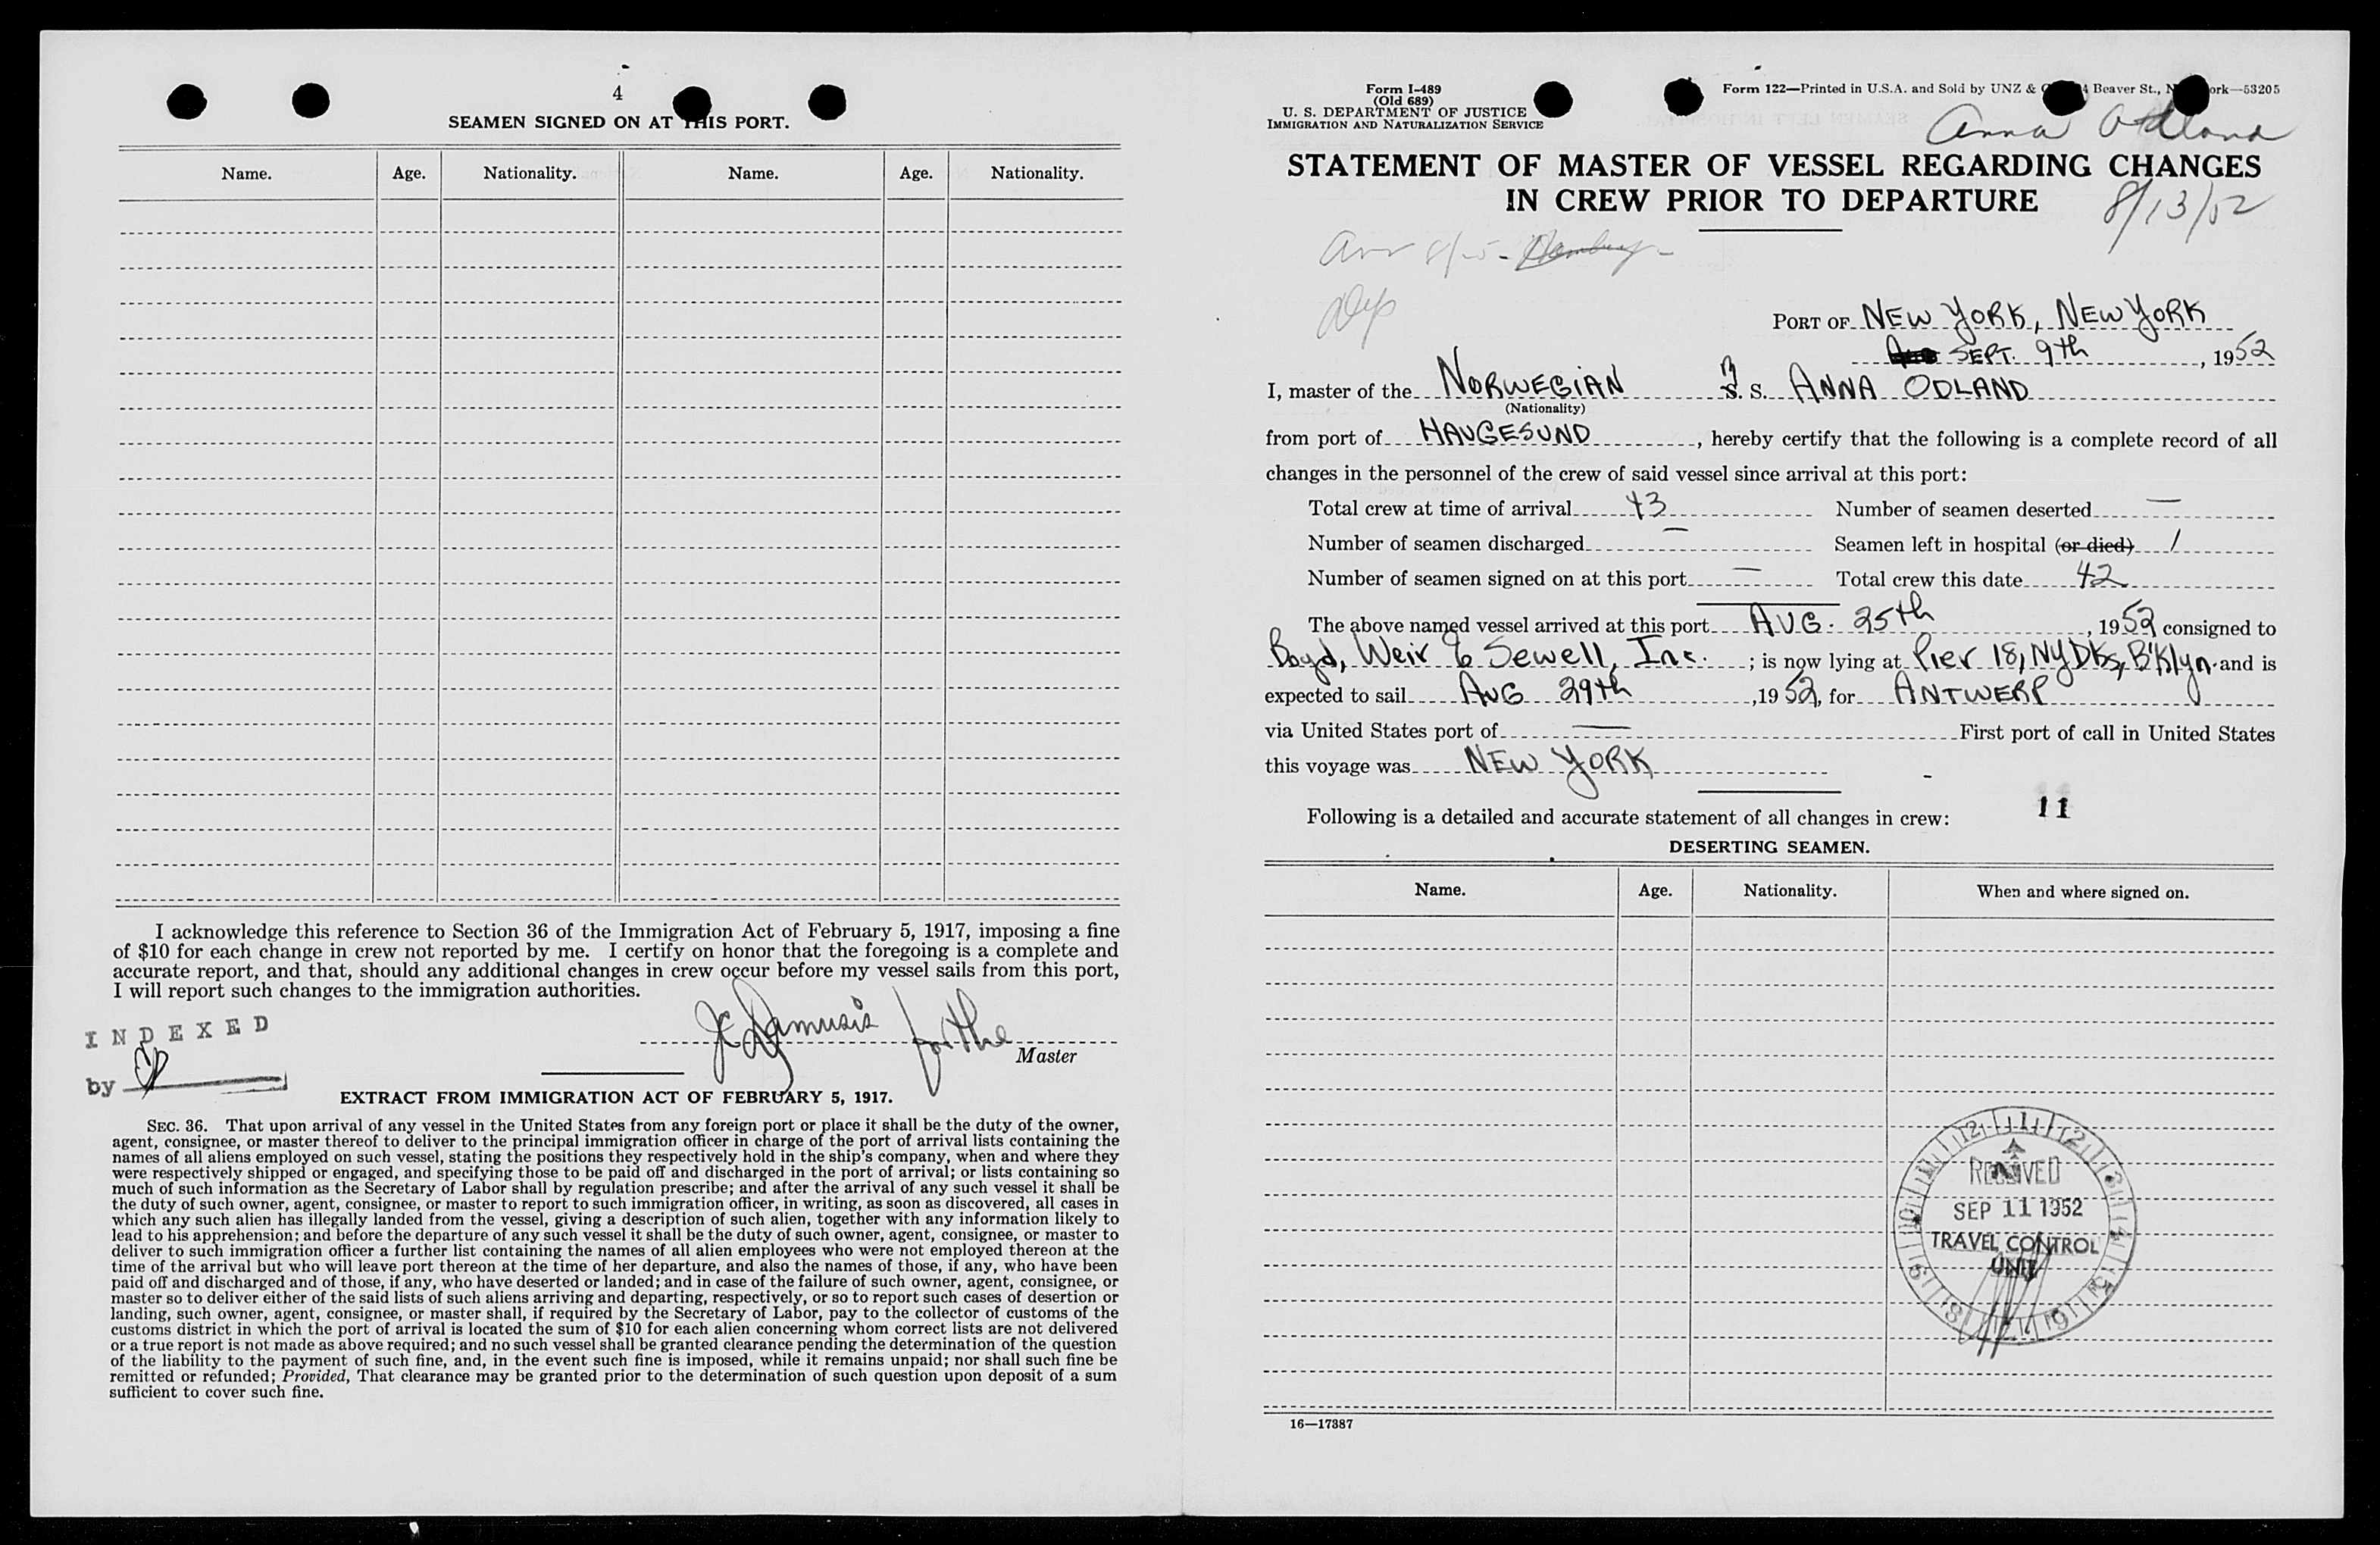 4
SEAMEN SIGNED ON AT THIS PORT.
Name. Age. Nationality. Name. Age. Nationality.
I acknowledge this reference to Section 36 of the Immigration Act of February 5, 1917, imposing a fine
of $10 for each change in crew not reported by me. I certify on honor that the foregoing is a complete and
accurate report, and that, should any additional changes in crew occur before my vessel sails from this port,
I will report such changes to the immigration authorities.
INDEXED
by
for the
Master
EXTRACT FROM IMMIGRATION ACT OF FEBRUARY 5, 1917.
SEC. 36. That upon arrival of any vessel in the United States from any foreign port or place it shall be the duty of the owner,
agent, consignee, or master thereof to deliver to the principal immigration officer in charge of the port of arrival lists containing the
names of all aliens employed on such vessel, stating the positions they respectively hold in the ship's company, when and where they
were respectively shipped or engaged, and specifying those to be paid off and discharged in the port of arrival; or lists containing so
much of such information as the Secretary of Labor shall by regulation prescribe; and after the arrival of any such vessel it shall be
the duty of such owner, agent, consignee, or master to report to such immigration officer, in writing, as soon as discovered, all cases in
which any such alien has illegally landed from the vessel, giving a description of such alien, together with any information likely to
lead to his apprehension; and before the departure of any such vessel it shall be the duty of such owner, agent, consignee, or master to
deliver to such immigration officer a further list containing the names of all alien employees who were not employed thereon at the
time of the arrival but who will leave port thereon at the time of her departure, and also the names of those, if any, who have been
paid off and discharged and of those, if any, who have deserted or landed; and in case of the failure of such owner, agent, consignee, or
master so to deliver either of the said lists of such aliens arriving and departing, respectively, or so to report such cases of desertion or
landing, such owner, agent, consignee, or master shall, if required by the Secretary of Labor, pay to the collector of customs of the
customs district in which the port of arrival is located the sum of $10 for each alien concerning whom correct lists are not delivered
or a true report is not made as above required; and no such vessel shall be granted clearance pending the determination of the question
of the liability to the payment of such fine, and, in the event such fine is imposed, while it remains unpaid; nor shall such fine be
remitted or refunded; Provided, That clearance may be granted prior to the determination of such question upon deposit of a sum
sufficient to cover such fine.
Form I-489
(Old 689)
U. S. DEPARTMENT OF JUSTICE
IMMIGRATION AND NATURALIZATION SERVICE
Form 122—Printed in U.S.A. and Sold by UNZ & Beaver St., ork—53205
Anna Odland
STATEMENT OF MASTER OF VESSEL REGARDING CHANGES
IN CREW PRIOR TO DEPARTURE
8/13/52
Arr
Dep
PORT OF NEW YORK, NEW YORK
SEPT. 9th, 1952
I, master of the NORWEGIAN M. S. ANNA ODLAND
(Nationality)
from port of HAUGESUND, hereby certify that the following is a complete record of all
changes in the personnel of the crew of said vessel since arrival at this port:
Total crew at time of arrival 43 Number of seamen deserted —
Number of seamen discharged — Seamen left in hospital (or died) 1
Number of seamen signed on at this port — Total crew this date 42
The above named vessel arrived at this port AUG. 25th, 1952 consigned to
Boyd, Weir & Sewell, Inc. ; is now lying at Pier 18, NY Dks, B'klyn. and is
expected to sail AUG 29th, 1952, for ANTWERP
via United States port of — First port of call in United States
this voyage was NEW YORK
Following is a detailed and accurate statement of all changes in crew: 11
DESERTING SEAMEN.
Name. Age. Nationality. When and where signed on.
12 1 2 3 4 5 6 7 8 9 10 11
RECEIVED
SEP 11 1952
TRAVEL CONTROL
UNIT
16—17887